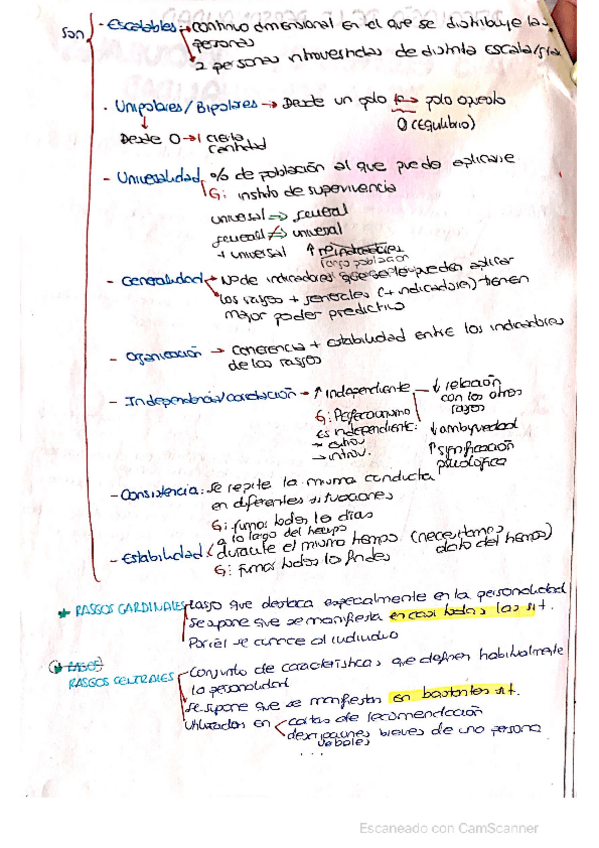 Son
- Escalables → continuo dimensional en el que se distribuye las
personas
2 personas introvertidas de distinta escala/
· Unipolares / Bipolares → Desde un polo ↔ polo opuesto
Desde 0 → 1 cierta
cantidad
0 (equilibrio)
- Universalidad % de población al que puede aplicarse
Ej: instinto de supervivencia
universal ⇒ general
general ⇏ universal
+ universal ↑
población
- Generalidad Nº de indicadores que se le pueden aplicar
Los rasgos + generales (+ indicadores) tienen
mayor poder predictivo
- Organización → Coherencia + estabilidad entre los indicadores
de los rasgos
- Independencia/correlación → ↑ Independiente ↓ relación
con los otros
rasgos
Ej: Perfeccionismo
es independiente:
→ extrov
→ introv.
↓ ambigüedad
↑ significación
psicológica
- Consistencia: se repite la misma conducta
en diferentes situaciones
Ej: fumar todos los días
- Estabilidad a lo largo del tiempo
durante el mismo tiempo (necesitamos
dato del tiempo)
Ej: fumas todos los findes
★ RASGOS CARDINALES Rasgo que destaca especialmente en la personalidad
se supone que se manifiesta en casi todas las sit.
Por él se conoce al individuo
RASGOS CENTRALES Conjunto de características que definen habitualmente
la personalidad
Se supone que se manifiestan en bastantes sit.
Utilizados en cartas de recomendación
descripciones breves de una persona
verbales
...
Escaneado con CamScanner